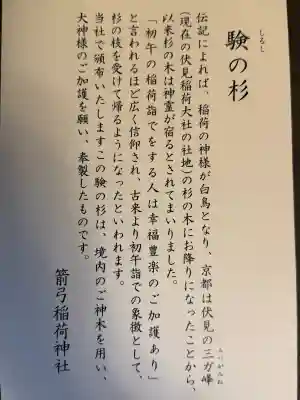 しるし
験の杉
伝記によれば、稲荷の神様が白鳥となり、京都は伏見の三ガ峰
(現在の伏見稲荷大社の社地)の杉の木にお降りになったことから、
以来杉の木は神霊が宿るとされてまいりました。
「初午の稲荷詣でをする人は幸福豊楽のご加護あり」
と言われるほど広く信仰され、古来より初午詣での象徴として、
杉の枝を受けて帰るようになったといわれます。
当社で頒布いたしますこの験の杉は、境内のご神木を用い、
大神様のご加護を願い、奉製したものです。
箭弓稲荷神社